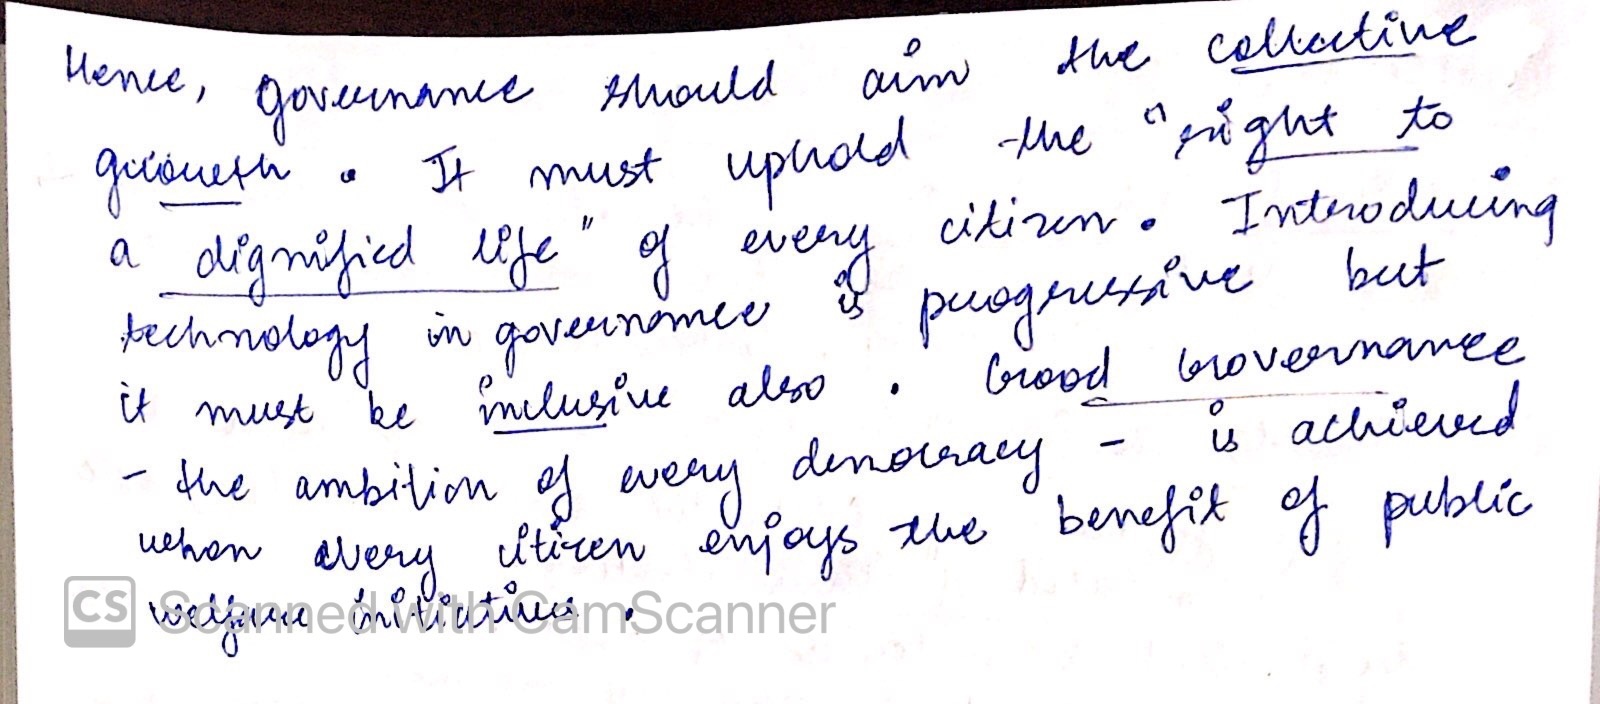 Hence, governance should aim the collective
growth. It must uphold the "right to
a dignified life" of every citizen. Introducing
technology in governance is progressive but
it must be inclusive also. Good Governance
- the ambition of every democracy - is achieved
when every citizen enjoys the benefit of public
welfare initiatives.
CS Scanned with CamScanner